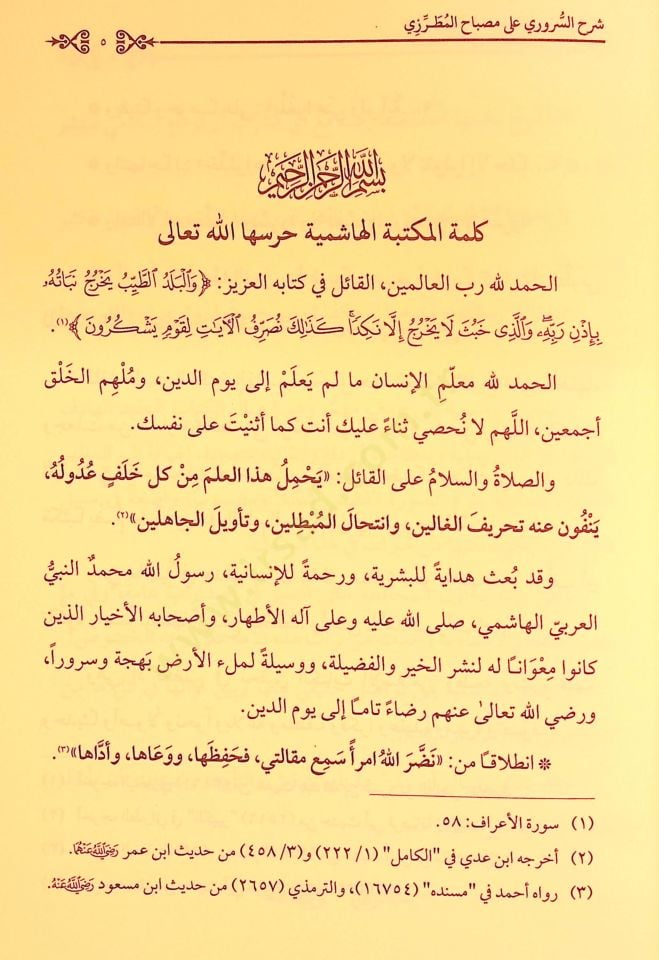 شرح السُّروري على مصباح المُطَرِّزِي
٥
بِسْمِ اللَّهِ الرَّحْمَٰنِ الرَّحِيمِ
كلمة المكتبة الهاشمية حرسها الله تعالى
الحمد لله رب العالمين، القائل في كتابه العزيز: ﴿وَٱلْبَلَدُ ٱلطَّيِّبُ يَخْرُجُ نَبَاتُهُۥ
بِإِذْنِ رَبِّهِۦ ۖ وَٱلَّذِى خَبُثَ لَا يَخْرُجُ إِلَّا نَكِدًا ۚ كَذَٰلِكَ نُصَرِّفُ ٱلْآيَـٰتِ لِقَوْمٍ يَشْكُرُونَ﴾(١).
الحمد لله معلّمِ الإنسان ما لم يَعلَمْ إلى يوم الدين، ومُلْهِم الخَلْق
أجمعين، اللَّهم لا نُحصي ثناءً عليك أنت كما أثنيْتَ على نفسك.
والصلاةُ والسلامُ على القائل: «يَحْمِلُ هذا العلمَ مِنْ كل خَلَفٍ عُدُولُهُ،
يَنْفُون عنه تحريفَ الغالين، وانتحالَ المُبْطِلين، وتأويلَ الجاهلين»(٢).
وقد بُعث هدايةً للبشرية، ورحمةً للإنسانية، رسولُ الله محمدٌ النبيُّ
العربيّ الهاشمي، صلى الله عليه وعلى آله الأطهار، وأصحابه الأخيار الذين
كانوا مِعْوَانًا له لنشر الخير والفضيلة، ووسيلةً لملء الأرض بَهجة وسروراً،
ورضي الله تعالىٰ عنهم رضاءً تاما إلى يوم الدين.
* انطلاقًا من: «نَضَّرَ اللهُ امرأً سَمِع مقالتي، فحَفِظَها، ووَعَاها، وأدَّاها»(٣).
(١) سورة الأعراف: ٥٨.
(٢) أخرجه ابن عدي في "الكامل" (١/ ٢٢٢) و(٣/ ٤٥٨) من حديث ابن عمر رَضِيَ اللَّهُ عَنْهُمَا.
(٣) رواه أحمد في "مسنده" (١٦٧٥٤)، والترمذي (٢٦٥٧) من حديث ابن مسعود رَضِيَ اللَّهُ عَنْهُ.